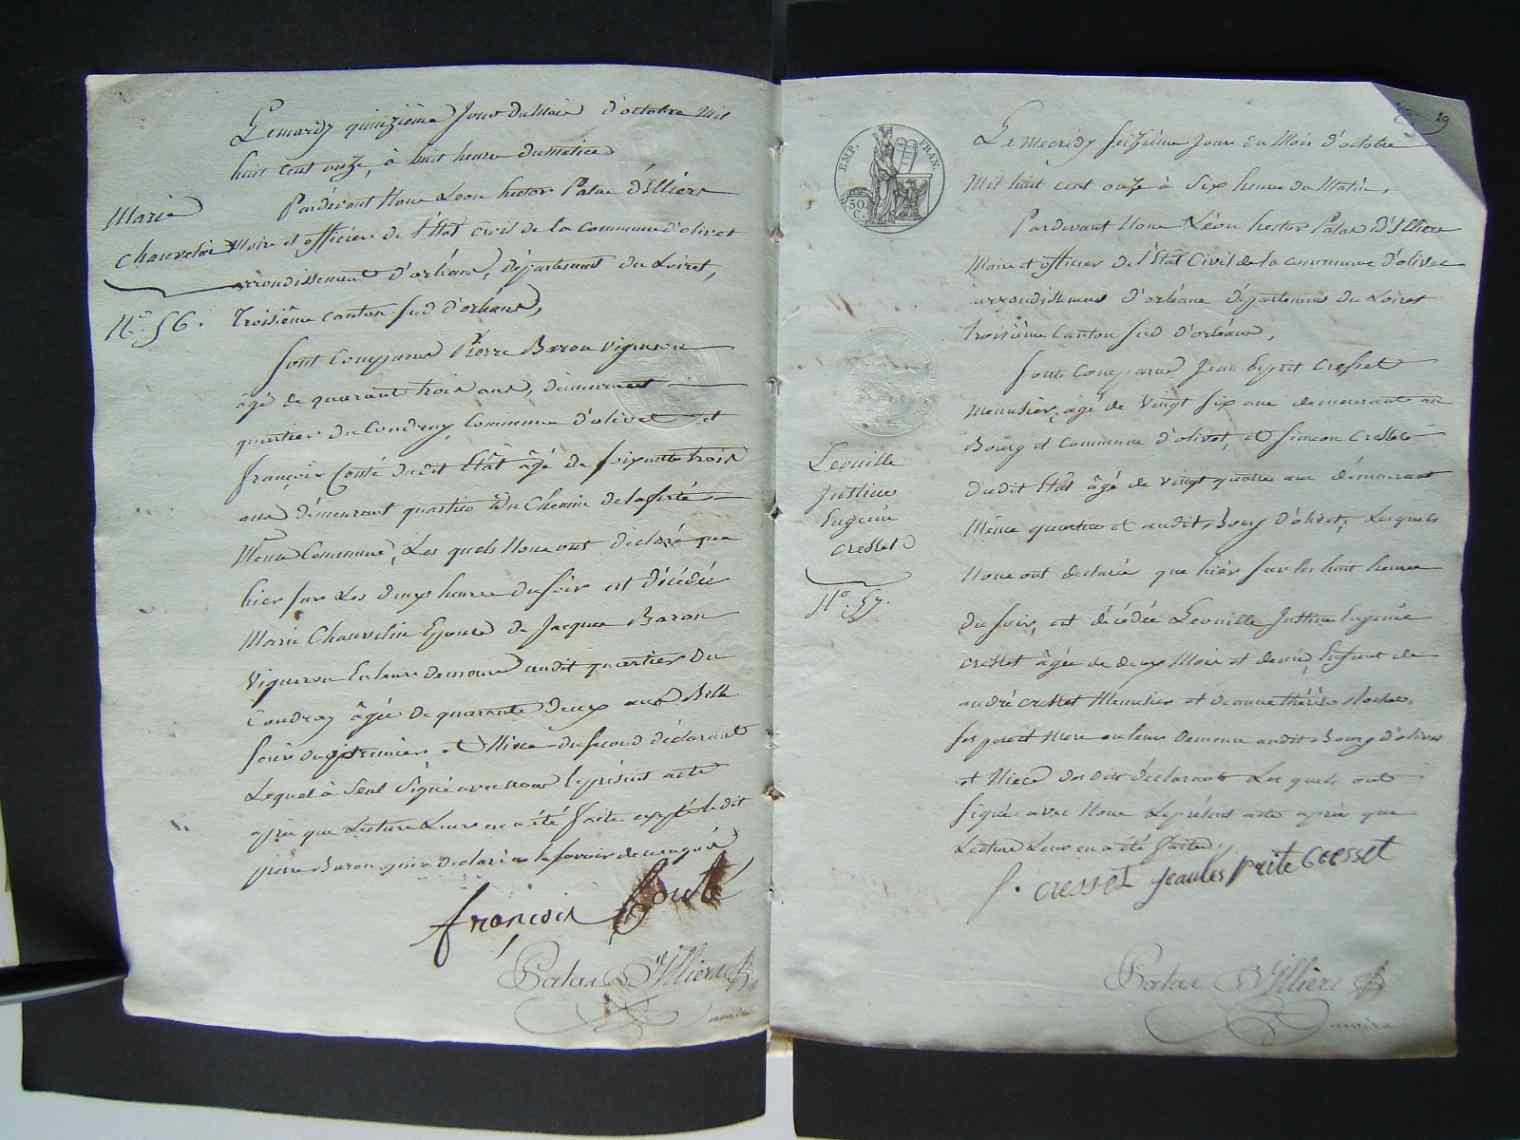 Le mardy quinzième Jour du Mois d'octobre Mil
huit cent onze, à huit heure du matin
Pardevant Nous Léon hector Patas d'Illiers
Marie
Chauvelin
Maire et officier de l'État Civil de la Commune d'olivet
arrondissement d'orléans, département du Loiret,
N.° 56.
troisième canton sud d'orléans,
sont Comparus Pierre Baron Vigneron
âgé de quarant trois ans, demeurant
quartier du Coudray Commune d'olivet et
françois Conté dudit État âgé de soixante trois
ans demeurant quartier du Chemin de la ferté
Même Commune, Les quels Nous ont déclaré que
hier sur Les deux heures du soir est décédée
Marie Chauvelin Epouse de Jacques Baron
Vigneron en leure demeure audit quartier du
Coudray âgée de quarante deux ans Belle
soeur du premier et Niece du second déclarant
Lequel à Seul Signé avec nous le présent acte
après que Lecture Leur en a été faite excepté ledit
pierre Baron qui a déclaré ne le savoir de ce enquis
françois Conté
Patas D'Illiers
maire
29
EMP. FRAN
50 C.
Le Mecridy seizième Jour du Mois d'octobre
Mil huit cent onze à Six heure du Matin,
Pardevant Nous Léon hector Patas d'Illiers
Maire et officier de l'État Civil de la commune d'olivet
arrondissement d'orléans département du Loiret
troisième Canton sud d'orléans,
sont Comparus Jean esprit Cresset
Menusier, âgé de vingt six ans demeurant au
Bourg et Commune d'olivet, et simeon Cresset
Leonille
Justine
Eugenie
Cresset
N.° 57.
dudit État âgé de vingt quatre ans démeurant
Même quartier et audit Bourg d'olivet, Lesquels
Nous ont declarée que hier sur les huit heures
du soir, est décédée Leonille Justine Eugénie
Cresset âgée de deux Mois et demie, Enfant de
andré Cresset Menusier et de anne thérèse
ses père et Mere en leure demeure audit Bourg d'olivet
et Niece des dits déclarants Les quels ont
signé avec Nous Le présent acte après que
Lecture Leur en a été faite.
S. cresset Jean Es prite Cresset
Patas D'Illiers
maire